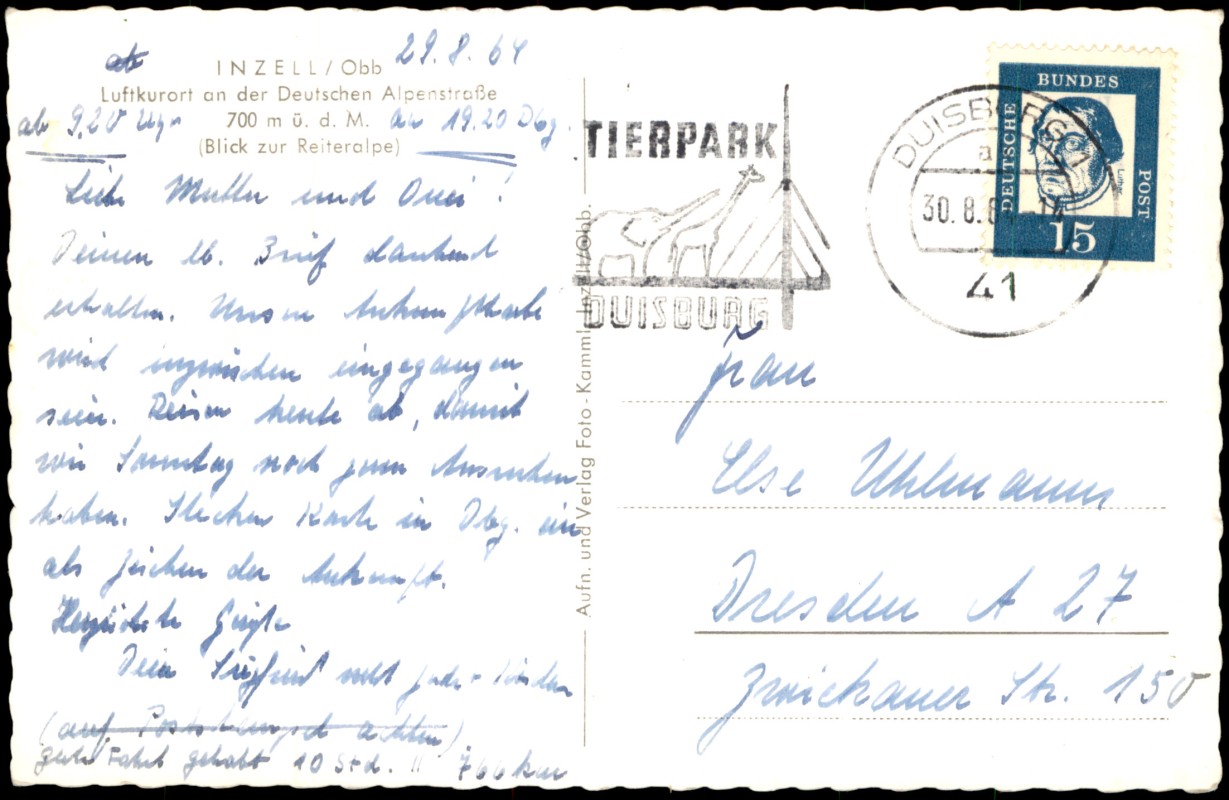 ab
INZELL/Obb 29.8.64
Luftkurort an der Deutschen Alpenstraße
ab 9,20 Uhr 700 m ü. d. M. an 19.20 Dbg.
(Blick zur Reiteralpe)
Liebe Mutter und Omi!
Deinen lb. Brief dankend
erhalten. Unsere Ankunftskarte
wird inzwischen eingegangen
sein. Reisen heute ab, damit
wir Sonntag noch zum Ausruhen
haben. Stecken Karte in Dbg. ein
als Zeichen der Ankunft.
Herzlichste Grüße
Dein Siegfried nebst Kinder
(auf Poststempel achten)
gute Fahrt gehabt 10 Std. !! 766 km
Aufn. und Verlag Foto-Kamml, Inzell/Obb.
TIERPARK
DUISBURG
DUISBURG 1
a
30.8.64
41
DEUTSCHE
BUNDES
POST
Luther
15
Frau
Else Uhlmann
Dresden A 27
Zwickauer Str. 150